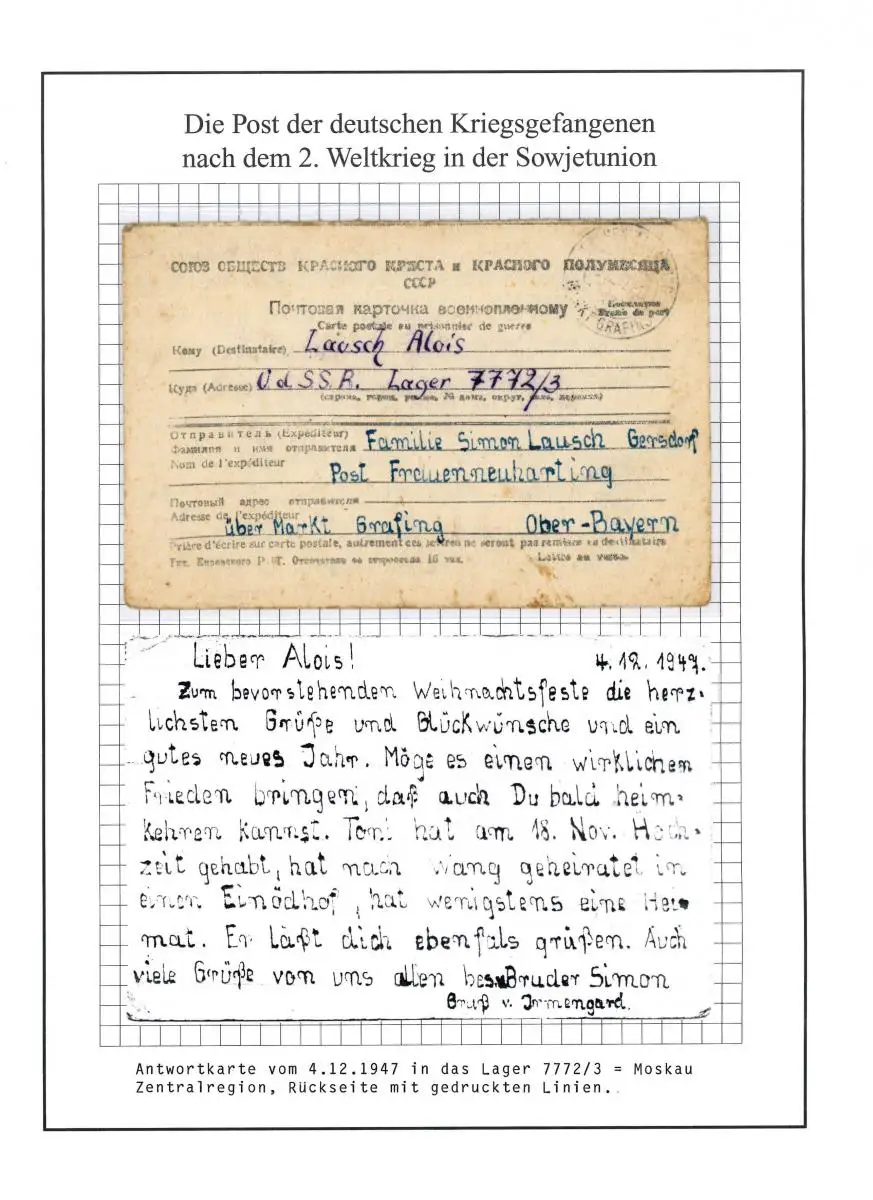 Die Post der deutschen Kriegsgefangenen
nach dem 2. Weltkrieg in der Sowjetunion
СОЮЗ ОБЩЕСТВ КРАСНОГО КРЕСТА и КРАСНОГО ПОЛУМЕСЯЦА
СССР
Почтовая карточка военнопленному
Carte postale au prisonnier de guerre
Бесплатно
Franc de port
GRAFING
Кому (Destinataire) Lausch Alois
Куда (Adresse) U.d.S.S.R. Lager 7772/3
(страна, город, улица, № дома, округ, село, деревня)
Отправитель (Expéditeur)
Фамилия и имя отправителя Familie Simon Lausch Gersdorf
Nom de l'expéditeur
Post Frauenneuharting
Почтовый адрес отправителя
Adresse de l'expéditeur
über Markt Grafing Ober-Bayern
Prière d'écrire sur carte postale, autrement ces lettres ne seront pas remises au destinataire
Lieber Alois! 4.12.1947.
Zum bevorstehenden Weihnachtsfeste die herz-
lichsten Grüße und Glückwünsche und ein
gutes neues Jahr. Möge es einen wirklichen
Frieden bringen, daß auch Du bald heim-
kehren kannst. Toni hat am 18. Nov. Hoch-
zeit gehabt, hat nach Wang geheiratet in
einen Einödhof, hat wenigstens eine Hei-
mat. Er läßt dich ebenfals grüßen. Auch
viele Grüße von uns allen bes. Bruder Simon
Gruß v. Irmengard.
Antwortkarte vom 4.12.1947 in das Lager 7772/3 = Moskau
Zentralregion, Rückseite mit gedruckten Linien.